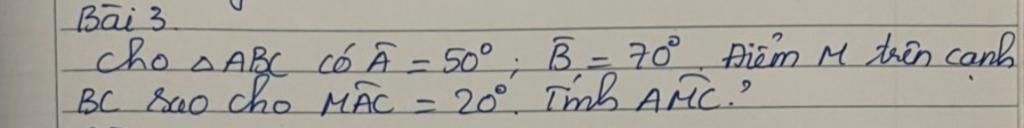 Bài 3.
Cho △ABC có Â = 50°; B̂ = 70°. Điểm M trên cạnh
BC sao cho MÂC = 20°. Tính AM̂C?